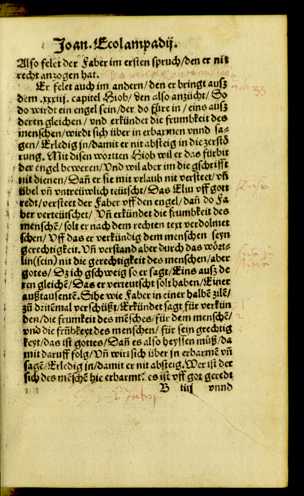 Joan. Ecolampadij.
Also felet der Faber im ersten spruch/den er nit
recht anzogen hat.
Er felet auch im andern/den er bringt auſz
dem .xxxiij. capitel Hiob/den also anzücht/So
do wirdt ein engel sein/der do fürt in/eins auſz
deren gleichen/ vnd erkündet die frumkeit des
menschen/wirdt sich über in erbarmen vnnd sa-
gen/Erledig in/damit er nit absteig in die zerstö
rung. Mit disen wortten Hiob wil er das fürbit
der engel beweren/Vnd wil aber im die gschrifft
nit dienen/Dañ er sie mit vrlaub nit versteet/vñ
übel vñ vntreüwlich teütschet/Das Eliu vff gott
redt/versteet der Faber vff den engel/dañ do Fa
ber verteütschet/Vñ erkündet die frumkeit des
menschē/solt er nach dem rechten text verdolmet
schen/Vff das er verkündig dem menschen seyn
gerechtigkeit. Vñ verstand aber durch das wört-
lin(sein) nit die gerechtigkeit des menschen/aber
gotes/Dz ich gschweig so er sagt/Eins auſz de
ren gleichē/Das er verteutscht solt haben/Einer
auſz tausentē. Sihe wie Faber in einer halbē zilē/
zů driimal verschüſzt/Erkündet sagt für verkün
den/die frumkeit des mēsches/für dem menschē/
vnd die frūbkeyt des menschen/für sein grechtig
keyt/das ist gottes/Dañ es also heyssen můſz/da
mit daruff folg/Vñ wirt sich über in erbarmē vñ
sagē/Erledig in/damit er nit absteig. Wer ist der
sich des mēschē hie erbarmt? es ist vff got geredt
B iiij vnnd